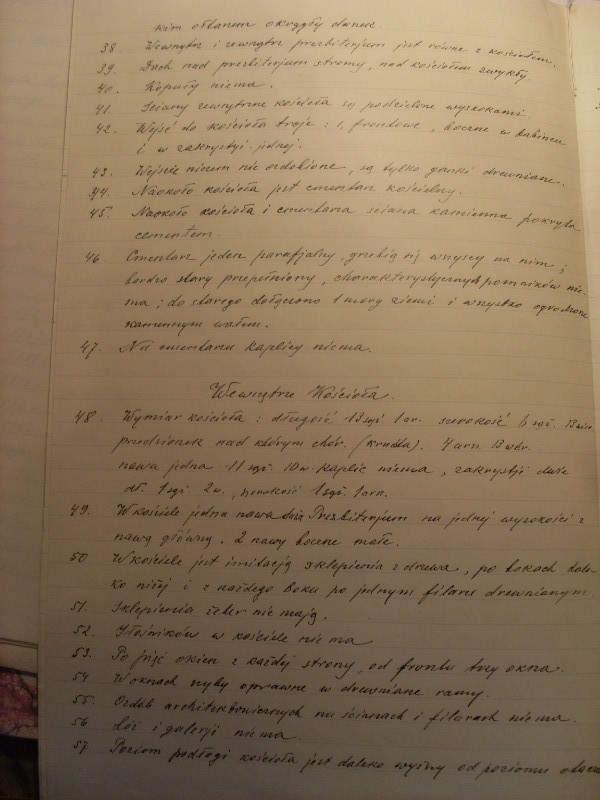 nim ołtarzem okrągły daszek
38. Wewnątrz i zewnątrz prezbiterjum jest równe z kościołem.
39. Dach nad prezbiterjum stromy, nad kościołem zwykły.
40. Kopuły niema.
41. Ściany zewnętrzne kościoła są podzielone wyskokami
42. Wejść do kościoła troje: 1, frontowe, boczne w babincu
i w zakrystyi jednej.
43. Wejście niczem nie ozdobione, są tylko ganki drewniane.
44. Naokoło kościoła jest cmentarz kościelny.
45. Naokoło kościoła i cmentarza ściana kamienna pokryta
cementem.
46 Cmentarz jeden parafjalny grzebią się wszyscy na nim;
bardzo stary przepełniony, charakterystycznych pomników nie-
ma; do starego dołączono 1 morg ziemi i wszystko ogrodzone
kamiennym wałem.
47. Na cmentarzu kaplicy niema.
Wewnątrz Kościoła.
48. Wymiar kościoła: długość 13 sąż 1 ar. szerokość 6 sąż. 13 wier
przedsionek nad którym chór. (kruchta). 4 arsz 13 wier.
nawa jedna 11 sąż. 10 w. kaplic niema, zakrystji dwie
dł. 1 sąż 2 w., szerokość 1 sąż. 1 arsz.
49. W kościele jedna nawa Prezbiterjum na jednej wysokości z
nawą główną. 2 nawy boczne małe.
50 W kościele jest imitacją sklepienia z drzewa, po bokach dale-
ko niżej i z każdego boku po jednym filarze drewnianym.
51. Sklepienia żeber nie mają.
52. Głośników w kościele niema
53. Po pięć okien z każdej strony, od frontu trzy okna.
54 W oknach szyby oprawne w drewniane ramy.
55. Ozdób architektonicznych na ścianach i filarach niema.
56 Lóż i galerji niema.
57 Poziom podłogi kościoła jest daleko wyższy od poziomu